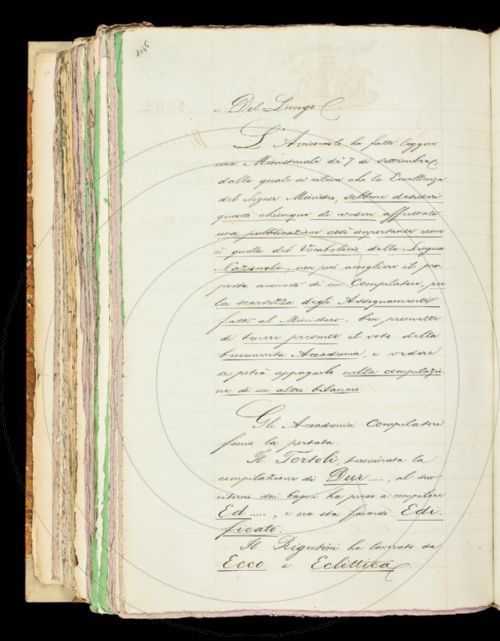 e Del Lungo
L'Arciconsolo ha fatto leggere
una Ministeriale di 7 di settembre,
dalla quale si rileva che la Eccellenza
del Signor Ministro, sebbene desideri
quanto chiunque di veder affrettata
una pubblicazione così importante come
è quella del Vocabolario della Lingua
Nazionale, non può accogliere la pro
posta aumento di un Compilatore, per
la scarsezza degli Assegnamenti
fatti al Ministero: ben promette
di tenere presente il voto della
benemerita Accademia, e vedere
se potrà appagarlo nella compilazio
ne di un altro bilancio.
Gli Accademici Compilatori
fanno la portata.
Il Tortoli, terminata la
compilazione di Dur...., al suo
ritorno dai bagni ha preso a compilare
Ed...., e ora sta facendo Edi
ficato.
Il Rigutini ha lavorato da
Ecco a Eclittica